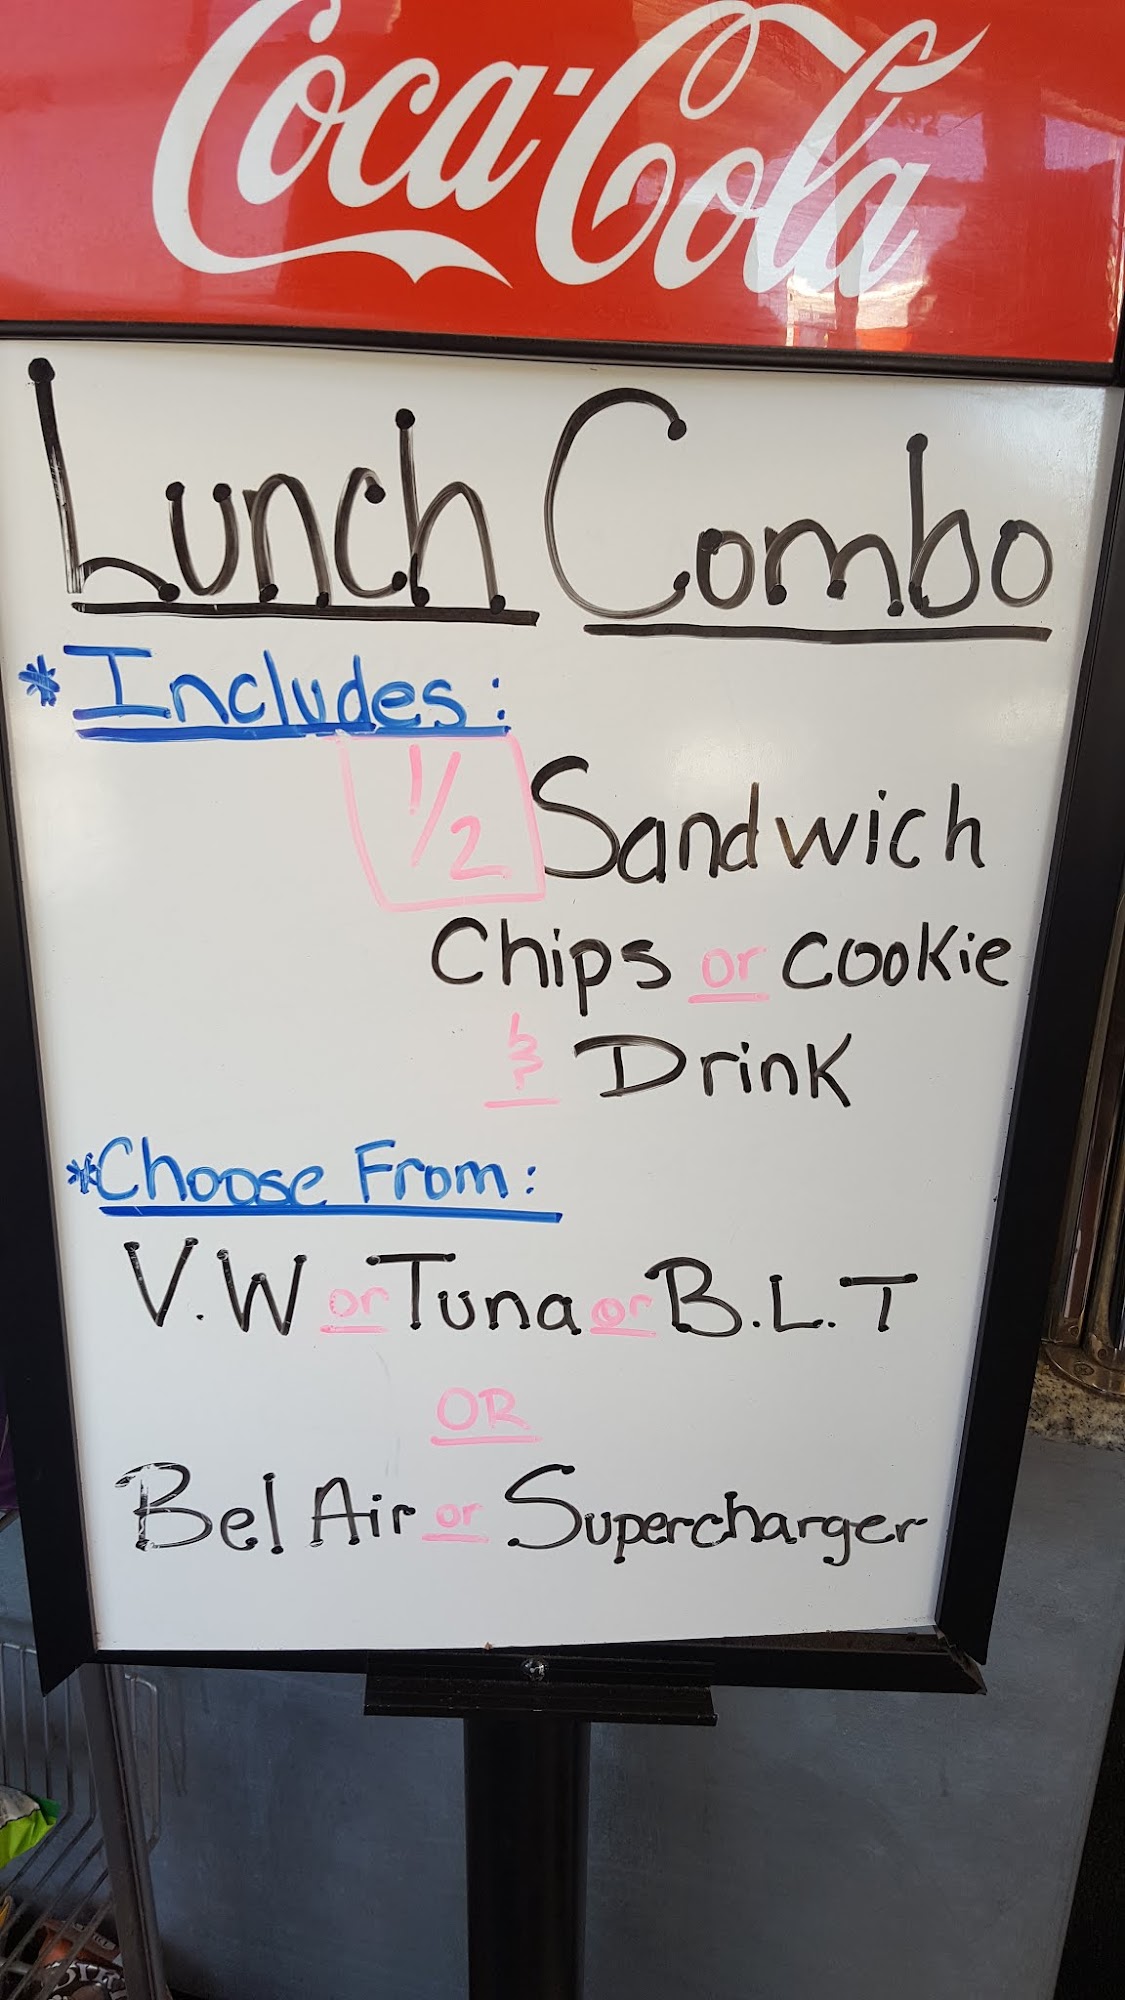 Coca-Cola
Lunch Combo
*Includes:
1/2 Sandwich
Chips or cookie
& Drink
*Choose From:
V.W or Tuna or B.L.T
OR
Bel Air or Supercharger